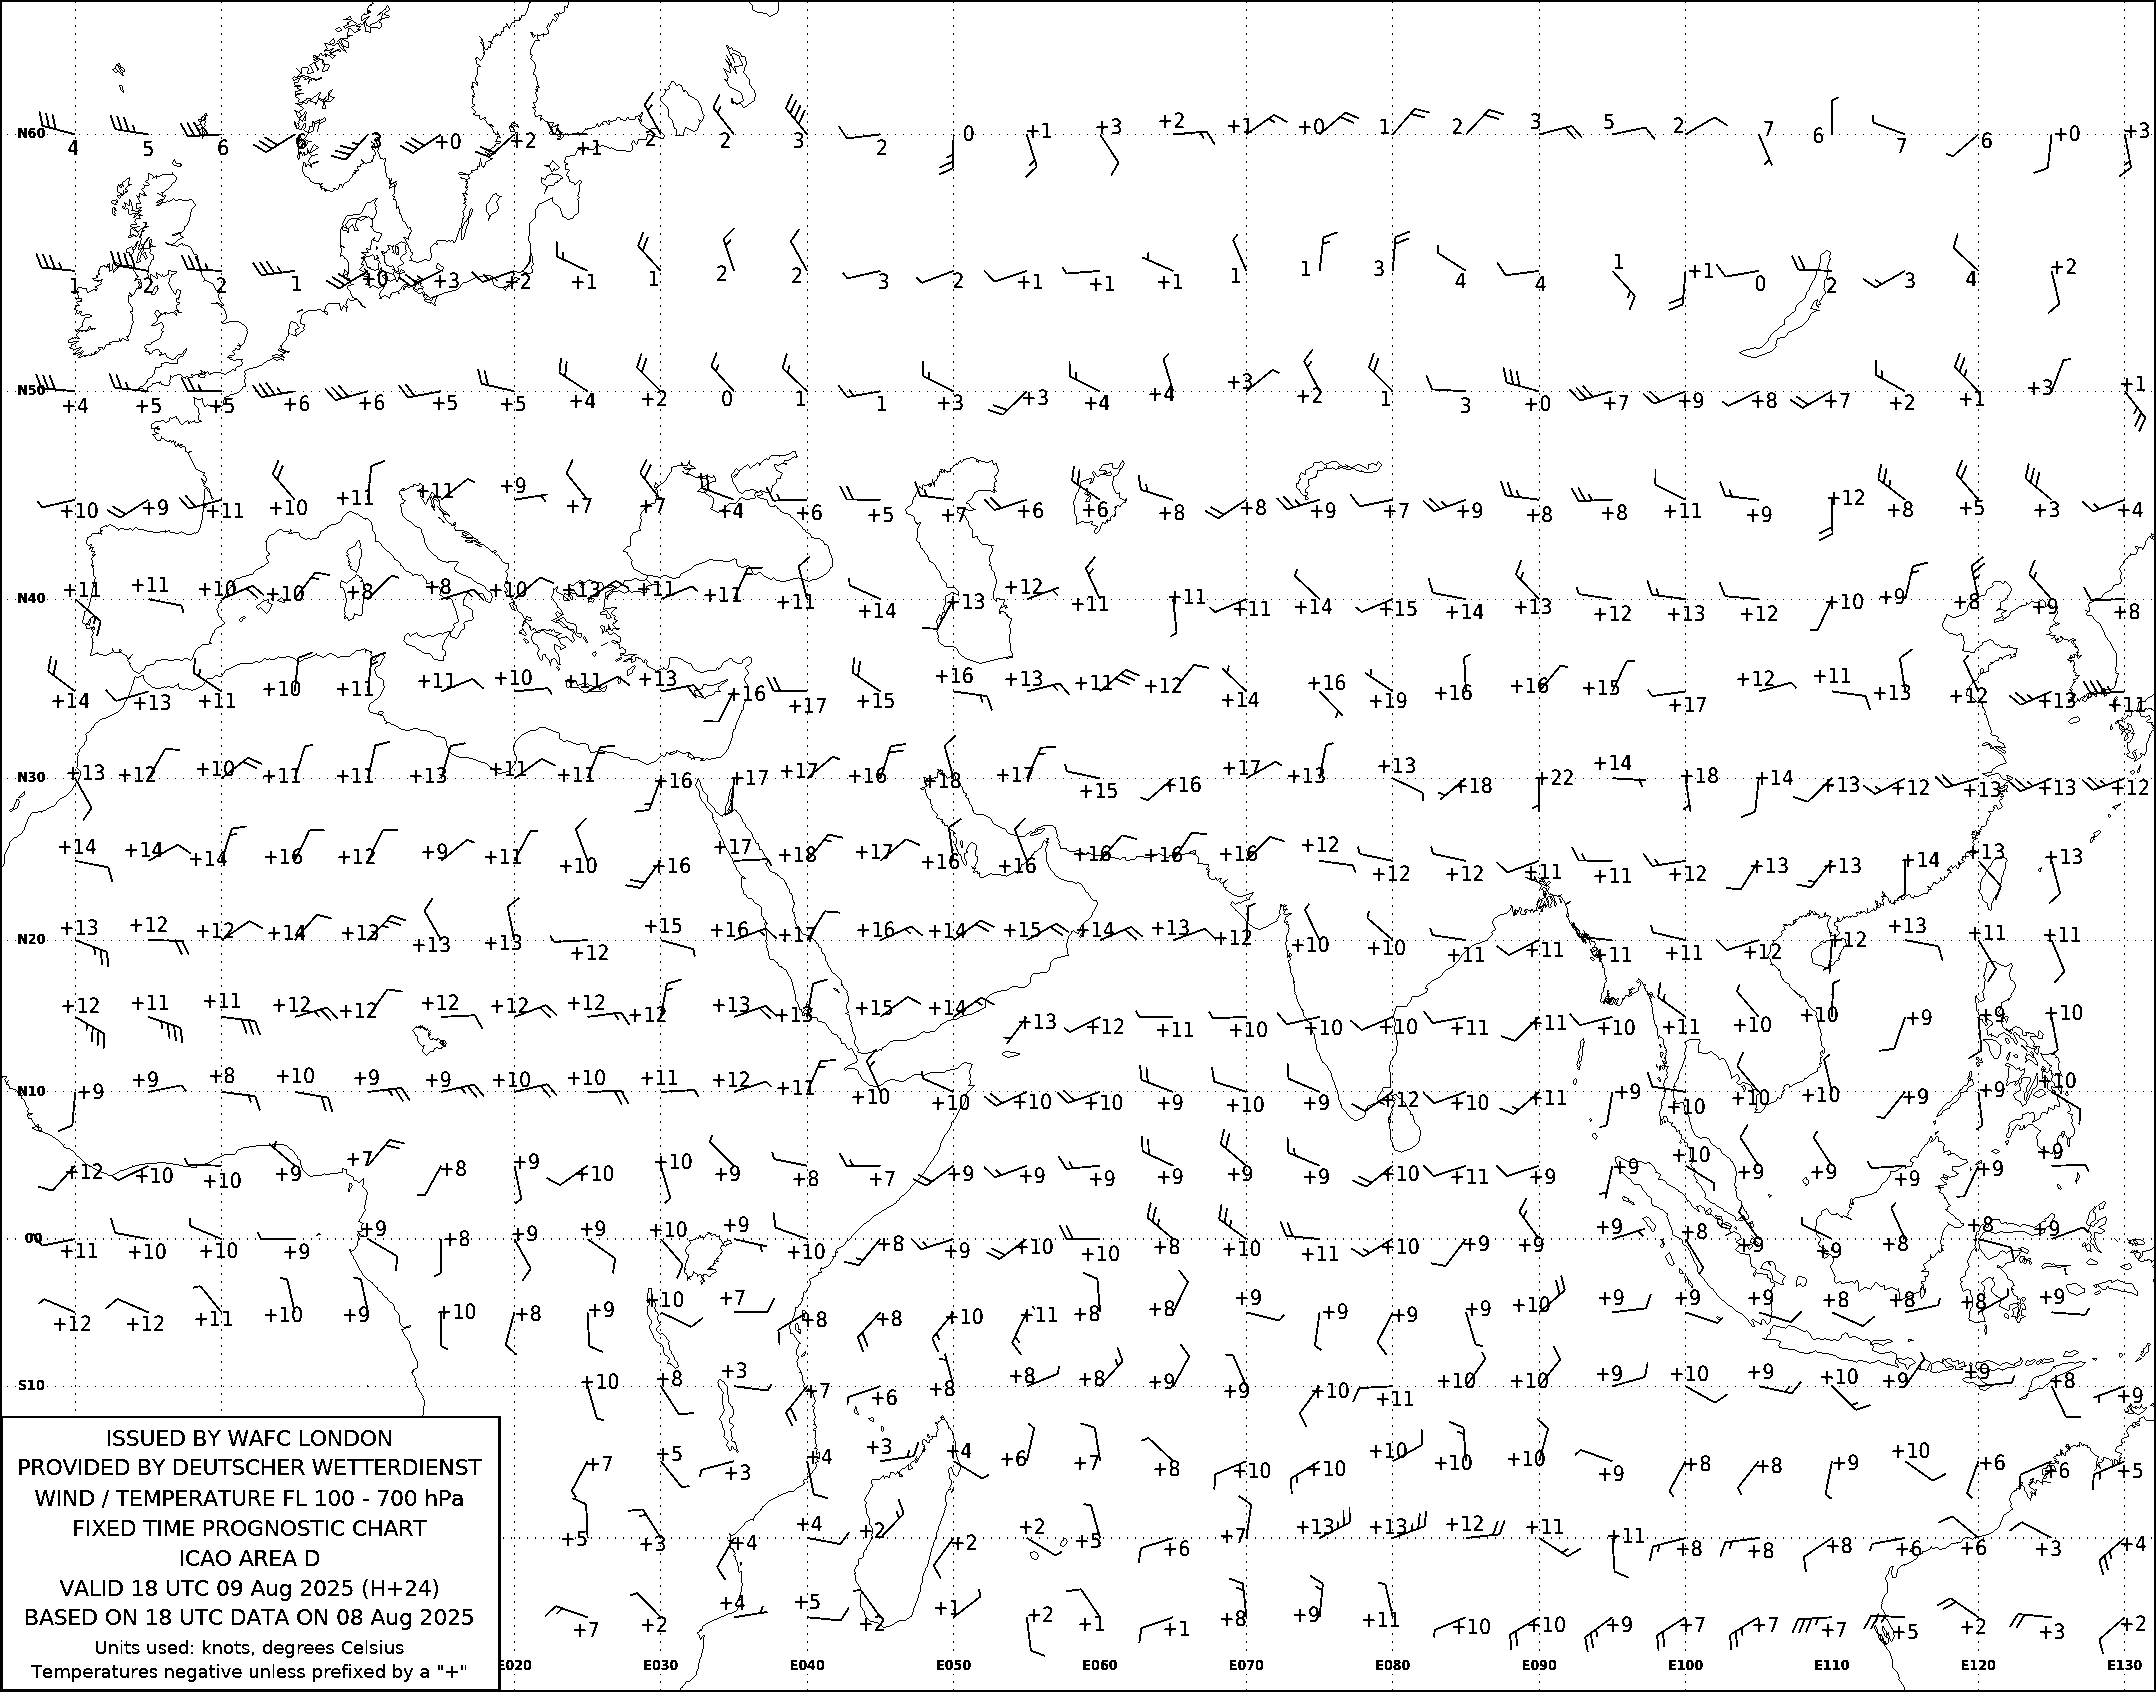 N60 4 5 6 6 3 +0 +2 +1 2 2 3 2 0 +1 +3 +2 +1 +0 1 2 3 5 2 7 6 7 6 +0 +3
1 2 2 1 +0 +3 +2 +1 1 2 2 3 2 +1 +1 +1 1 1 3 4 4 1 +1 0 2 3 4 +2
N50 +4 +5 +5 +6 +6 +5 +5 +4 +2 0 1 1 +3 +3 +4 +4 +3 +2 1 3 +0 +7 +9 +8 +7 +2 +1 +3 +1
+10 +9 +11 +10 +11 +11 +9 +7 +7 +4 +6 +5 +7 +6 +6 +8 +8 +9 +7 +9 +8 +8 +11 +9 +12 +8 +5 +3 +4
N40 +11 +11 +10 +10 +8 +8 +10 +13 +11 +11 +11 +14 +13 +12 +11 +11 +11 +14 +15 +14 +13 +12 +13 +12 +10 +9 +8 +9 +8
+14 +13 +11 +10 +11 +11 +10 +11 +13 +16 +17 +15 +16 +13 +11 +12 +14 +16 +19 +16 +16 +15 +17 +12 +11 +13 +12 +13 +11
N30 +13 +12 +10 +11 +11 +13 +11 +11 +16 +17 +17 +16 +18 +17 +15 +16 +17 +13 +13 +18 +22 +14 +18 +14 +13 +12 +13 +13 +12
+14 +14 +14 +16 +12 +9 +11 +10 +16 +17 +18 +17 +16 +16 +16 +16 +16 +12 +12 +12 +11 +11 +12 +13 +13 +14 +13 +13
N20 +13 +12 +12 +14 +13 +13 +13 +12 +15 +16 +17 +16 +14 +15 +14 +13 +12 +10 +10 +11 +11 +11 +11 +12 +12 +13 +11 +11
+12 +11 +11 +12 +12 +12 +12 +12 +12 +13 +13 +15 +14 +13 +12 +11 +10 +10 +10 +11 +11 +10 +11 +10 +10 +9 +9 +10
N10 +9 +9 +8 +10 +9 +9 +10 +10 +11 +12 +11 +10 +10 +10 +10 +9 +10 +9 +12 +10 +11 +9 +10 +10 +10 +9 +9 +10
+12 +10 +10 +9 +7 +8 +9 +10 +10 +9 +8 +7 +9 +9 +9 +9 +9 +9 +10 +11 +9 +9 +10 +9 +9 +9 +9 +9
00 +11 +10 +10 +9 +9 +8 +9 +9 +10 +9 +10 +8 +9 +10 +10 +8 +10 +11 +10 +9 +9 +9 +8 +9 +9 +8 +8 +9
+12 +12 +11 +10 +9 +10 +8 +9 +10 +7 +8 +8 +10 +11 +8 +8 +9 +9 +9 +9 +10 +9 +9 +9 +8 +8 +8 +9
S10 +10 +8 +3 +7 +6 +8 +8 +8 +9 +9 +10 +11 +10 +10 +9 +10 +9 +10 +9 +9 +8 +9
+7 +5 +3 +4 +3 +4 +6 +7 +8 +10 +10 +10 +10 +10 +9 +8 +8 +9 +10 +6 +6 +5
+5 +3 +4 +4 +2 +2 +2 +5 +6 +7 +13 +13 +12 +11 +11 +8 +8 +8 +6 +6 +3 +4
+7 +2 +4 +5 +2 +1 +2 +1 +1 +8 +9 +11 +10 +10 +9 +7 +7 +7 +5 +2 +3 +2
E020 E030 E040 E050 E060 E070 E080 E090 E100 E110 E120 E130
ISSUED BY WAFC LONDON
PROVIDED BY DEUTSCHER WETTERDIENST
WIND / TEMPERATURE FL 100 - 700 hPa
FIXED TIME PROGNOSTIC CHART
ICAO AREA D
VALID 18 UTC 09 Aug 2025 (H+24)
BASED ON 18 UTC DATA ON 08 Aug 2025
Units used: knots, degrees Celsius
Temperatures negative unless prefixed by a "+"